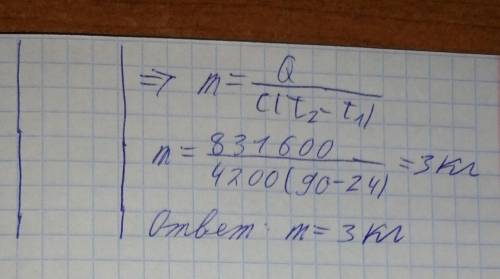 ⇒ m = Q / (C(t₂ - t₁))
m = 831600 / (4200(90-24)) = 3 кг
Ответ: m = 3 кг